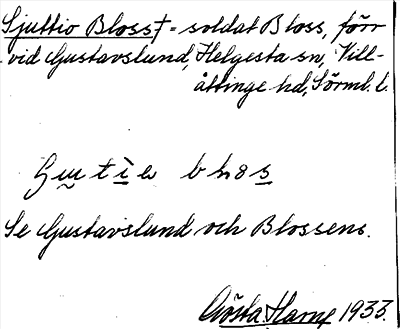 Sjuttio Bloss,† = soldat Bloss, förr
vid Gustavslund, Helgesta sn, Vill-
åttinge hd, Sörml. l.
Se Gustavslund och Blossens.
Gösta Harne 1933.